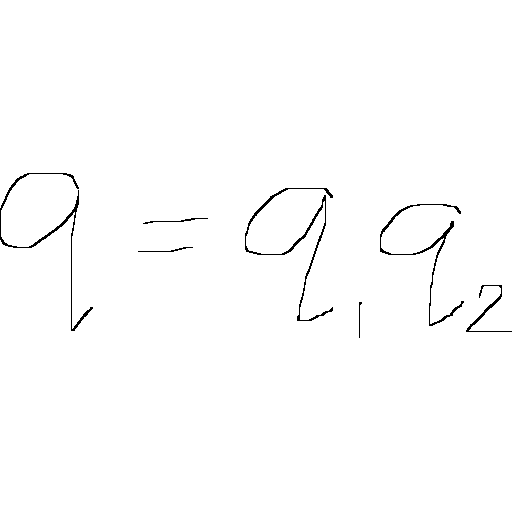 q = q₁q₂